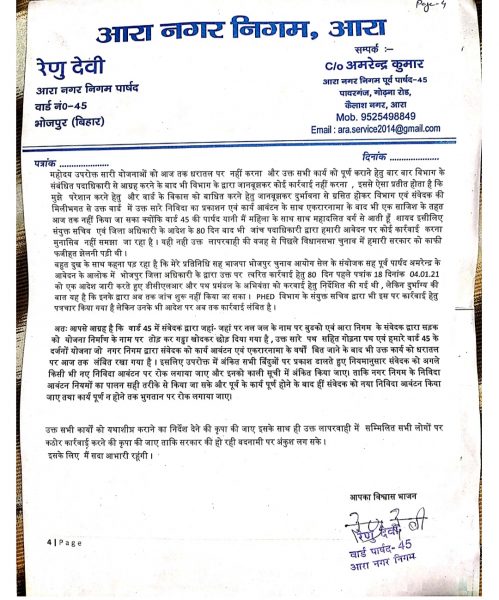 Page-4
आरा नगर निगम, आरा
रेणु देवी
आरा नगर निगम पार्षद
वार्ड नं0-45
भोजपुर (बिहार)
सम्पर्क :–
C/o अमरेन्द्र कुमार
आरा नगर निगम पूर्व पार्षद-45
पावरगंज, गोढ़ना रोड,
कैलाश नगर, आरा
Mob. 9525498849
Email : ara.service2014@gmail.com
पत्रांक ....................
दिनांक ....................
महोदय उपरोक्त सारी योजनाओं को आज तक धरातल पर नहीं करना और उक्त सभी कार्य को पूर्ण कराने हेतु बार बार विभाग के
संबंधित पदाधिकारी से आग्रह करने के बाद भी विभाग के द्वारा जानबूझकर कोई कार्रवाई नहीं करना , इससे ऐसा प्रतीत होता है कि
मुझे परेशान करने हेतु और वार्ड के विकास को बाधित करने हेतु जानबूझकर दुर्भावना से ग्रसित होकर विभाग एवं संवेदक की
मिलीभगत से उक्त वार्ड में उक्त सारे निविदा का प्रकाशन एवं कार्य आवंटन के साथ एकरारनामा के बाद भी एक साजिश के तहत
आज तक नहीं किया जा सका क्योंकि वार्ड 45 की पार्षद यानी मैं महिला के साथ साथ महादलित वर्ग से आती हूँ शायद इसीलिए
संयुक्त सचिव एवं जिला अधिकारी के आदेश के 80 दिन बाद भी जांच पदाधिकारी द्वारा हमारी आवेदन पर कोई कार्रवाई करना
मुनासिब नहीं समझा जा रहा है। यही नही उक्त लापरवाही की वजह से पिछले विधानसभा चुनाव में हमारी सरकार को काफी
फजीहत झेलनी पड़ी थी।
बहुत दुख के साथ कहना पड़ रहा है कि मेरे प्रतिनिधि सह भाजपा भोजपुर चुनाव आयोग सेल के संयोजक सह पूर्व पार्षद अमरेन्द्र के
आवेदन के आलोक में भोजपुर जिला अधिकारी के द्वारा उक्त पर त्वरित कार्रवाई हेतु 80 दिन पहले पत्रांक 18 दिनांक 04.01.21
को एक आदेश जारी करते हुए डीसीएलआर और पथ प्रमंडल के अभियंता को करवाई हेतु निर्देशित की गई थी , लेकिन दुर्भाग्य की
बात यह है कि इनके द्वारा अब तक जांच शुरू नहीं किया जा सका। PHED विभाग के संयुक्त सचिव द्वारा भी इस पर कार्रवाई हेतु
पत्रचार किया गया है लेकिन उनके भी आदेश पर अब तक कार्रवाई लंबित है।
अतः आपसे आग्रह है कि वार्ड 45 में संवेदक द्वारा जहां- जहां पर नल जल के नाम पर बुडको एवं आरा निगम के संवेदक द्वारा सड़क
की योजना निर्माण के नाम पर तोड़ कर गड्ढा खोदकर छोड़ दिया गया है , उक्त सारे पथ सहित गोढ़ना पथ एवं हमारे वार्ड 45 के
दर्जनों योजना जो नगर निगम द्वारा संवेदक को कार्य आवंटन एवं एकरारनामा के वर्षो बित जाने के बाद भी उक्त कार्य को धरातल
पर आज तक लंबित रखा गया है। इसलिए उपरोक्त में अंकित सभी बिंदुओं पर प्रकाश डालते हुए नियमानुसार संवेदक को अगले
किसी भी नए निविदा आवंटन पर रोक लगाया जाए और इनको काली सूची में अंकित किया जाए। ताकि नगर निगम के निविदा
आवंटन नियमों का पालन सही तरीके से किया जा सके और पूर्व के कार्य पूर्ण होने के बाद हीं संवेदक को नया निविदा आवंटन किया
जाए तथा कार्य पूर्ण न होने तक भुगतान पर रोक लगाया जाए।
उक्त सभी कार्यो को यथाशीघ्र कराने का निर्देश देने की कृपा की जाए इसके साथ ही उक्त लापरवाही में सम्मिलित सभी लोगों पर
कठोर कार्रवाई करने की कृपा की जाए ताकि सरकार की हो रही बदनामी पर अंकुश लग सके।
इसके लिए मैं सदा आभारी रहूंगी।
आपका विश्वास भाजन
रेणु देवी
रेणु देवी
वार्ड पार्षद- 45
आरा नगर निगम
4 | Page